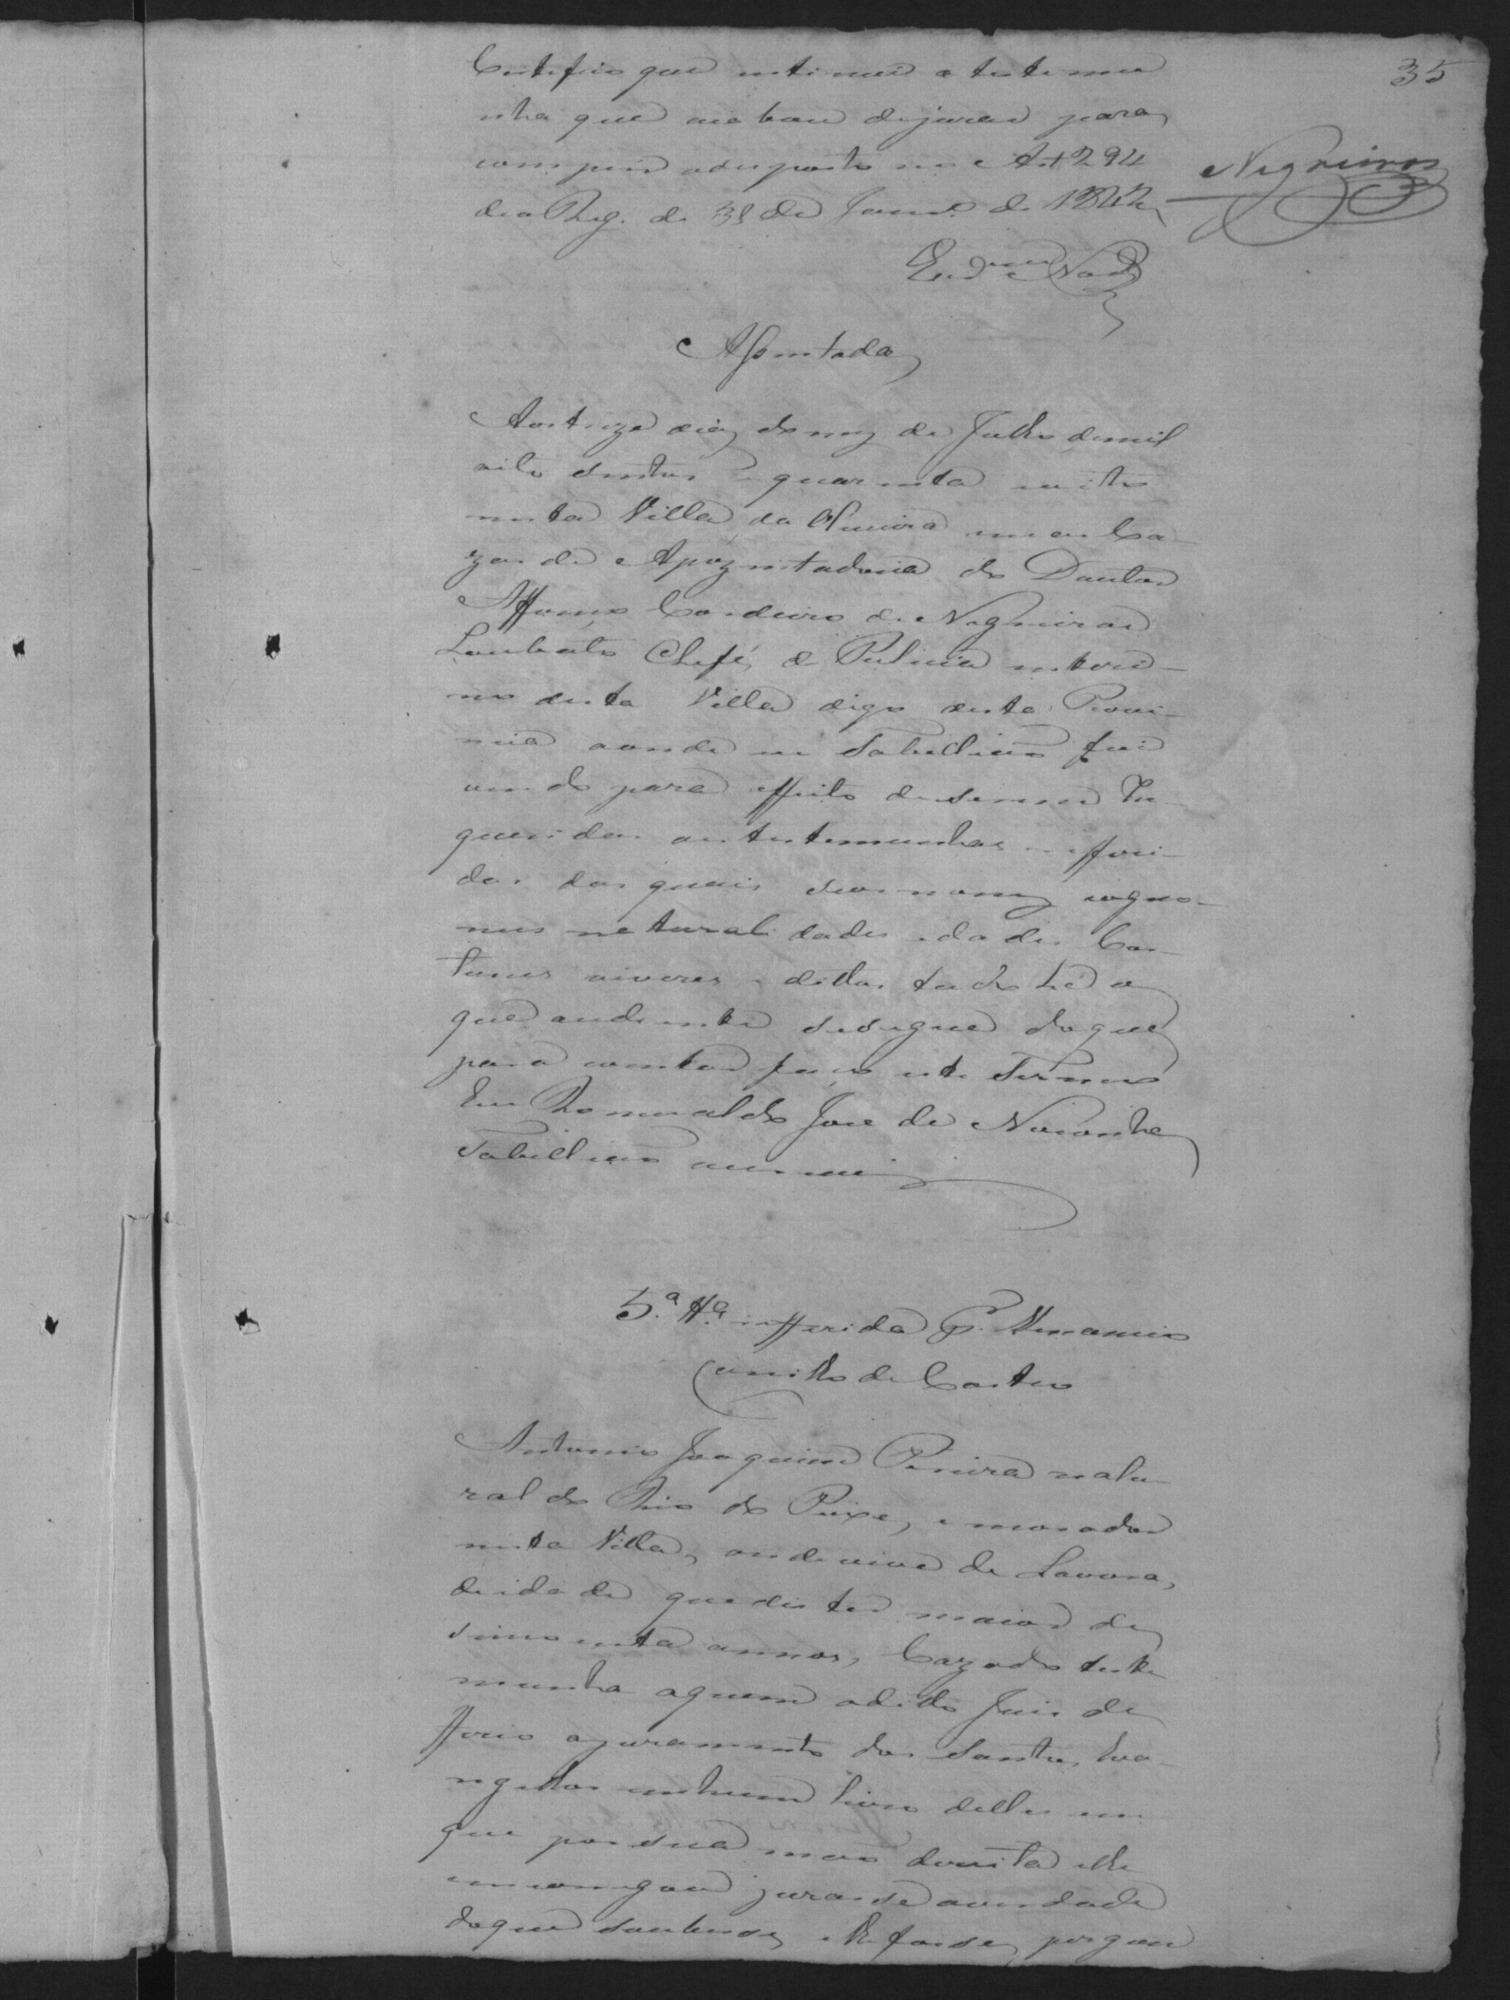 35
Certifico que intimei a testemu
nha que acabou de jurar para
comprir o desposto no Art 294
do Reg. de 31 de Janr.º de 1842
Negreiros
Assentada
Aos treze dias do mez de Julho de mil
oito centos e quarenta e oito
nesta Villa da em as Ca-
zas de Apozentadoria do Doutor
Affonso Cordeiro de Negreiros
Lombato Chefe de Pulicia interi-
no desta Villa digo desta Provi-
ncia aonde eu Tabellião fui
vindo para effeito de serem In
queridas as testemunhas refferi-
das das quais seos nomes cogno-
mes naturalidades idades Cos-
tumes viveres e dittos tudo hé o
que audiente se segue do que
para constar faço este Termo
Eu Romualdo Jose de Noronha
Tabellião escrevi
5.ª tt.ª refferida P. Venancio
Camillo de Castro
Antonio Joaquim Pereira natu-
ral do Rio do Peixe, e morador
nesta Villa, onde vive de Lavora,
de idade que dis ter maior de
sincoenta annos, Cazado teste
munha a quem o dito Juis de
fferio o juramento dos Santos Eva-
ngelhos em hum livro delles em
que pos sua mão dereita e lhe
encarregou jurasse a verdade
do que soubesse, e lhe fosse, pergun